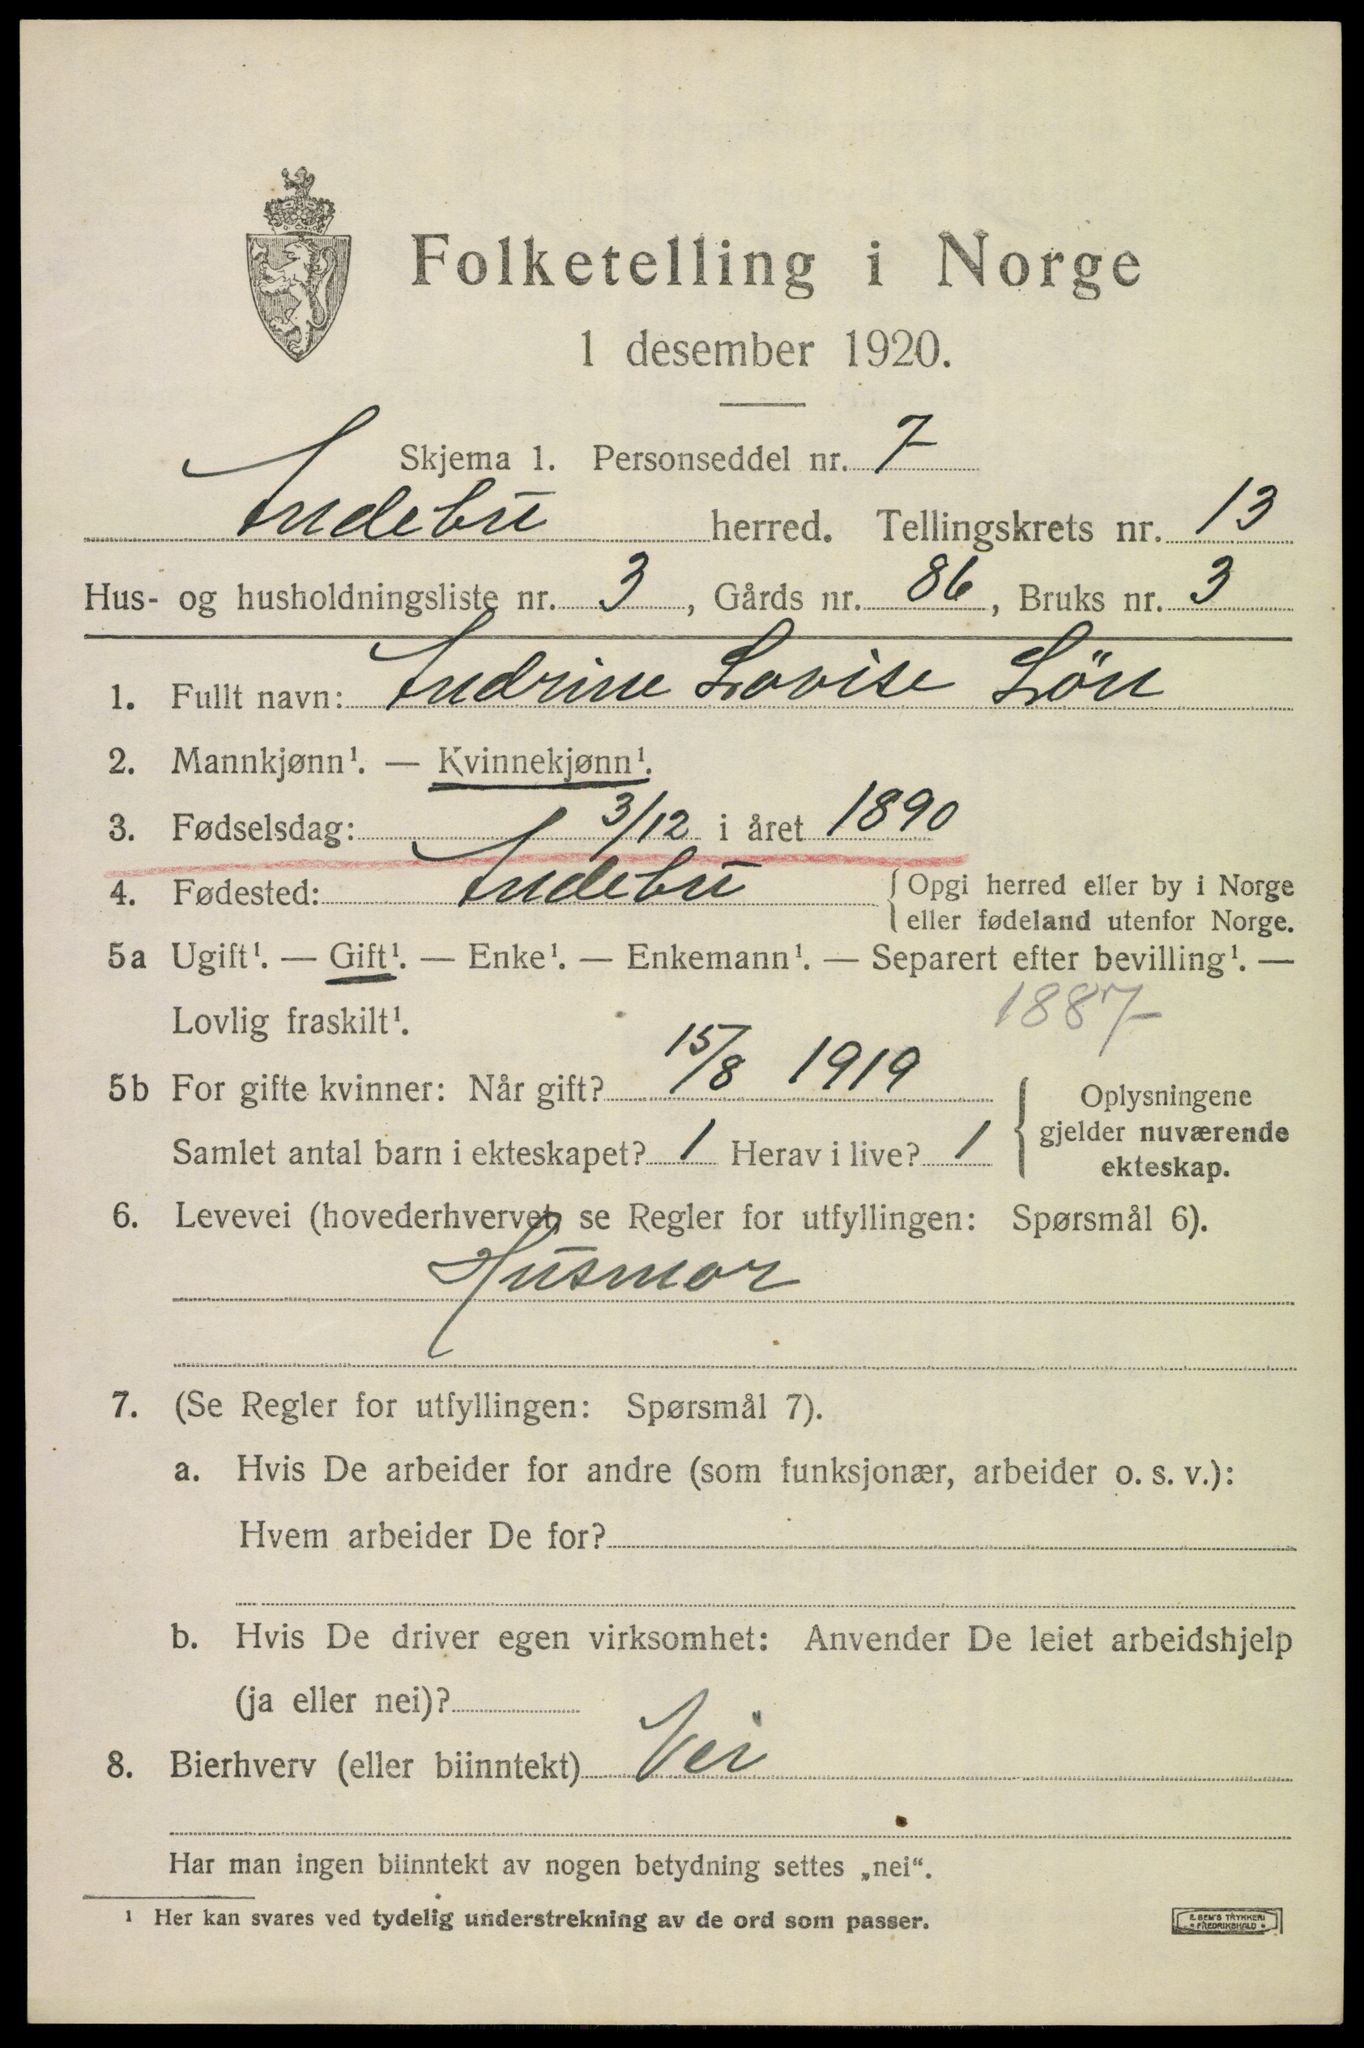 Folketelling i Norge
1 desember 1920.
Skjema 1. Personseddel nr. 7
Andebu herred. Tellingskrets nr. 13
Hus- og husholdningsliste nr. 3, Gårds nr. 86, Bruks nr. 3
1. Fullt navn: Andrine Lovise Lön
2. Mannkjønn¹. — Kvinnekjønn¹.
3. Fødselsdag: 3/12 i året 1890
4. Fødested: Andebu { Opgi herred eller by i Norge
eller fødeland utenfor Norge.
5a Ugift¹. — Gift¹. — Enke¹. — Enkemann¹. — Separert efter bevilling¹. —
Lovlig fraskilt¹. 1887
5b For gifte kvinner: Når gift? 15/8 1919
Samlet antal barn i ekteskapet? 1 Herav i live? 1
{ Oplysningene
gjelder nuværende
ekteskap.
6. Levevei (hovederhvervet, se Regler for utfyllingen: Spørsmål 6).
Husmor
7. (Se Regler for utfyllingen: Spørsmål 7).
a. Hvis De arbeider for andre (som funksjonær, arbeider o. s. v.):
Hvem arbeider De for?
b. Hvis De driver egen virksomhet: Anvender De leiet arbeidshjelp
(ja eller nei)?
8. Bierhverv (eller biinntekt) Nei
Har man ingen biinntekt av nogen betydning settes „nei“.
¹ Her kan svares ved tydelig understrekning av de ord som passer.
E. SEM'S TRYKKERI
• FREDRIKSHALD •